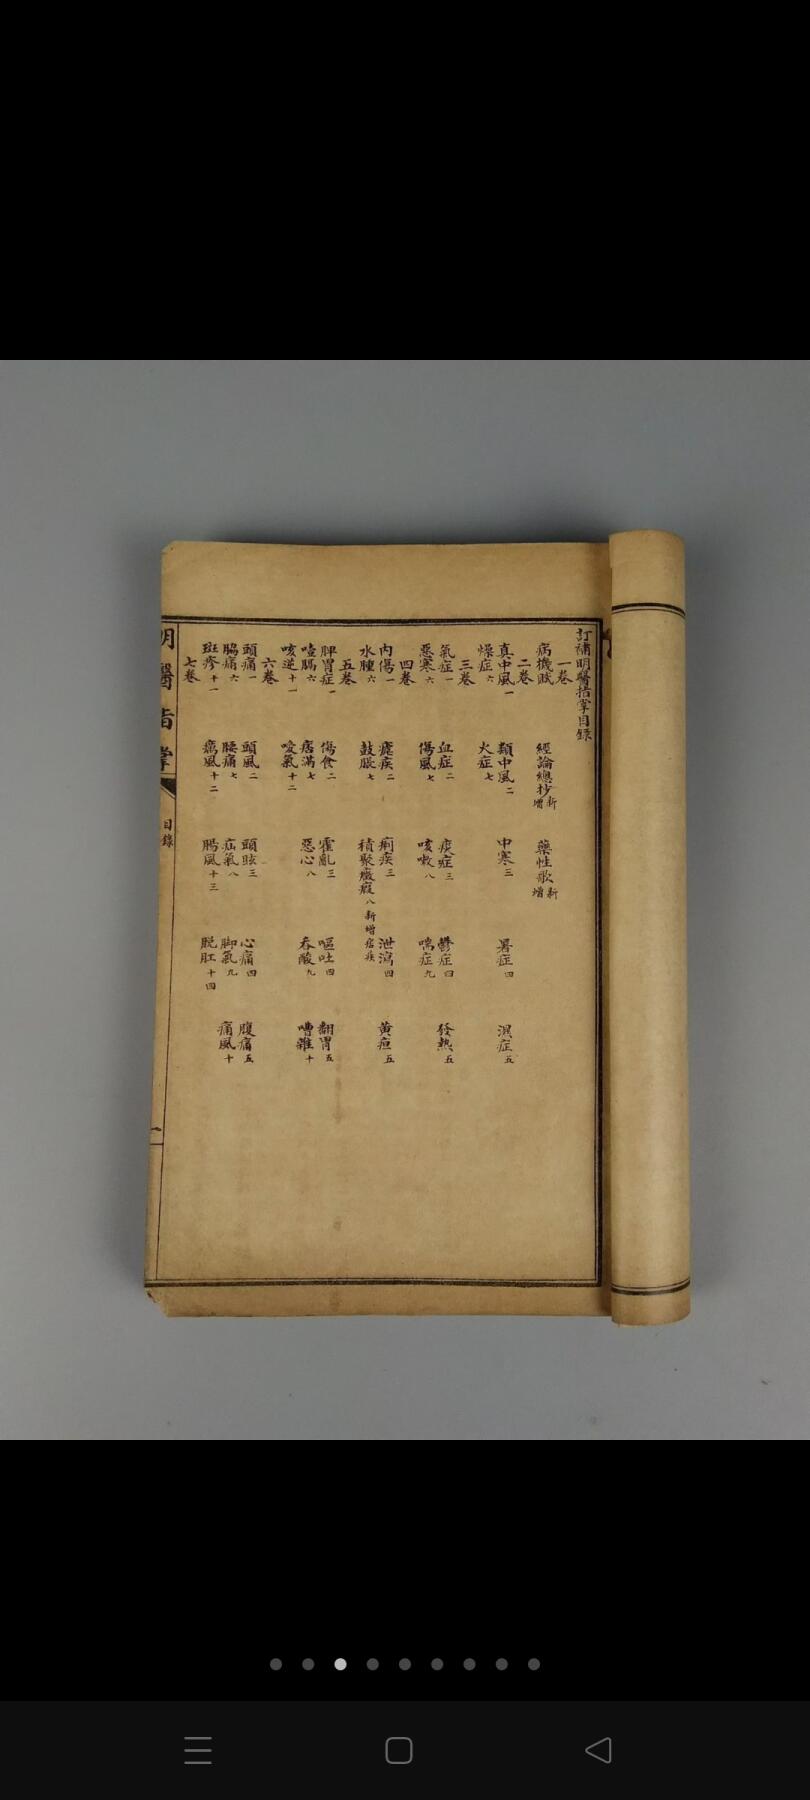 訂補明醫指掌目錄
一卷
病機賦 經論總抄新增 藥性歌新增
二卷
真中風一 類中風二 中寒三 暑症四 濕症五
燥症六 火症七
三卷
氣症一 血症二 痰症三 鬱症四 發熱五
惡寒六 傷風七 咳嗽八 喘症九
四卷
內傷一 瘧疾二 痢疾三 泄瀉四 黃疸五
水腫六 鼓脹七 積聚癥瘕八新增痞疾
五卷
脾胃症一 傷食二 霍亂三 嘔吐四 翻胃五
噎膈六 痞滿七 惡心八 吞酸九 嘈雜十
咳逆十一 噯氣十二
六卷
頭痛一 頭風二 頭眩三 心痛四 腹痛五
脇痛六 腰痛七 疝氣八 脚氣九 痛風十
斑疹十一 癘風十二 腸風十三 脫肛十四
七卷
明醫指掌 目錄 一